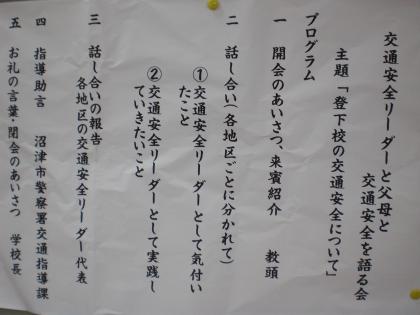 交通安全リーダーと父母と
交通安全を語る会
主題「登下校の交通安全について」
プログラム
一 開会のあいさつ、来賓紹介 教頭
二 話し合い(各地区ごとに分かれて)
①交通安全リーダーとして気付い
たこと
②交通安全リーダーとして実践し
ていきたいこと
三 話し合いの報告
各地区の交通安全リーダー代表
四 指導助言 沼津市警察署交通指導課
五 お礼の言葉・閉会のあいさつ 学校長